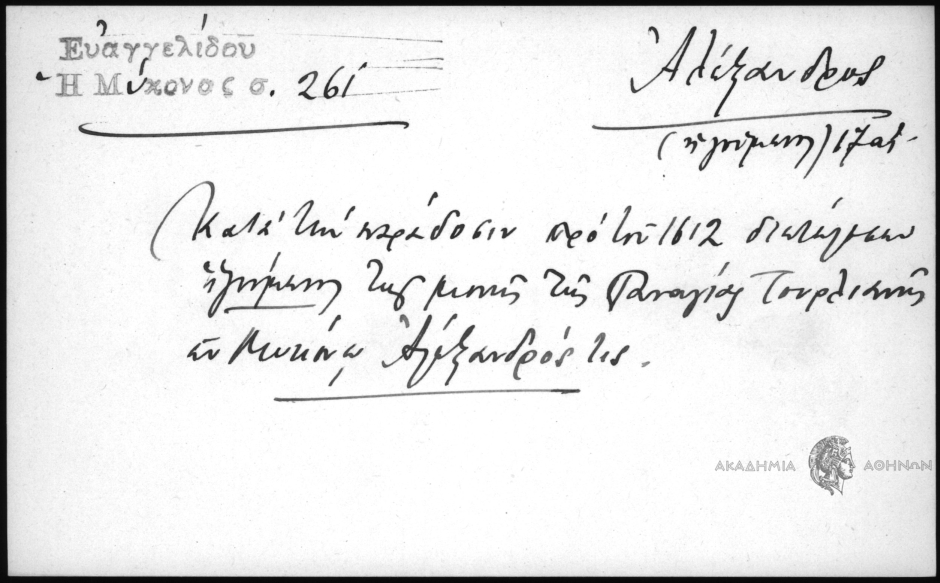 Εὐαγγελίδου
Ἡ Μύκονος σ. 261
Ἀλέξανδρος
(ἡγούμενος) 17 αἰ.
Κατὰ τὴν παράδοσιν πρὸ τοῦ 1612
ἡγούμενος τῆς μονῆς τῆς Παναγίας Τουρλιανῆς
ἐν Μυκόνῳ Ἀλέξανδρός τις.
ΑΚΑΔΗΜΙΑ ΑΘΗΝΩΝ